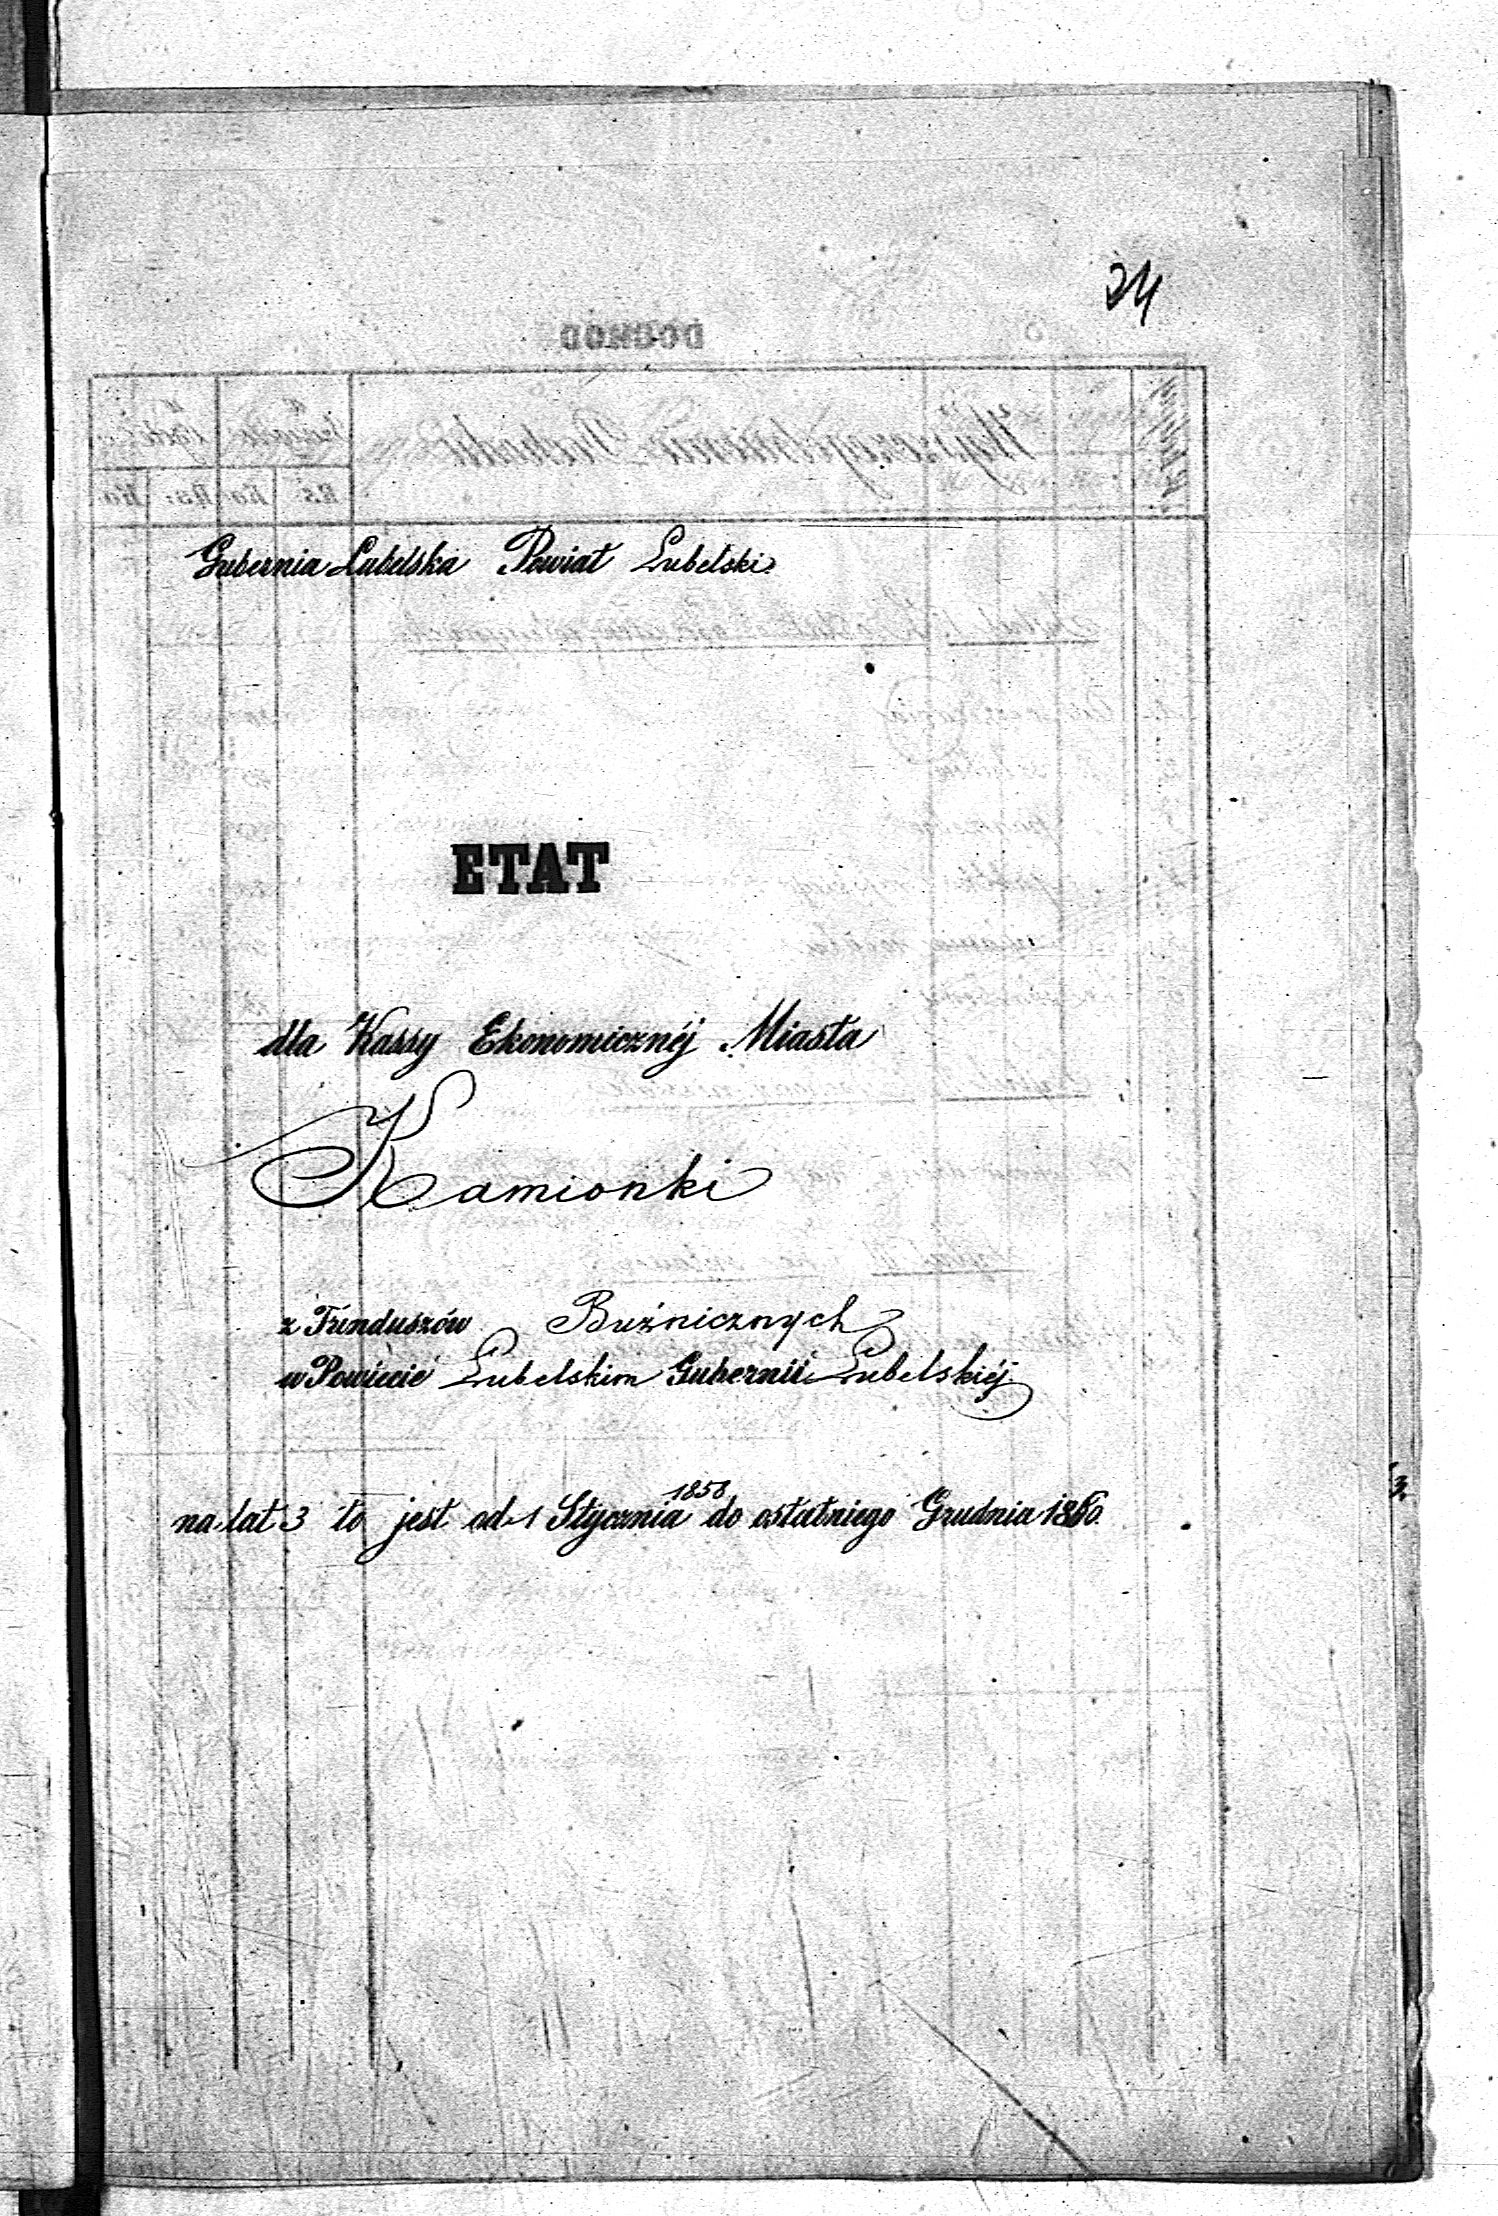 24
Gubernia Lubelska Powiat Lubelski
ETAT
dla Kassy Ekonomicznéj Miasta
Kamionki
z Funduszów Buźnicznych
w Powiecie Lubelskim Gubernii Lubelskiéj
na lat 3 to jest od 1 Stycznia 1858 do ostatniego Grudnia 1860.